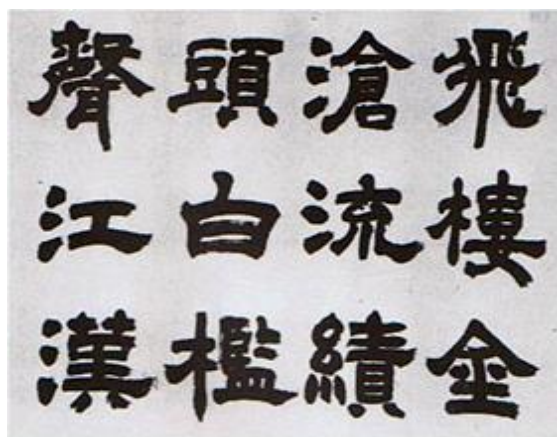 飛樓金
滄流績
頭白檻
聲江漢